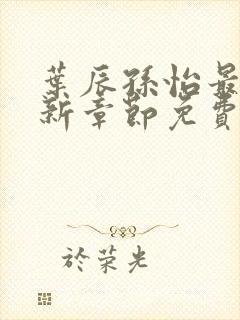 葉辰孫怡最
新章節免費
於荣光